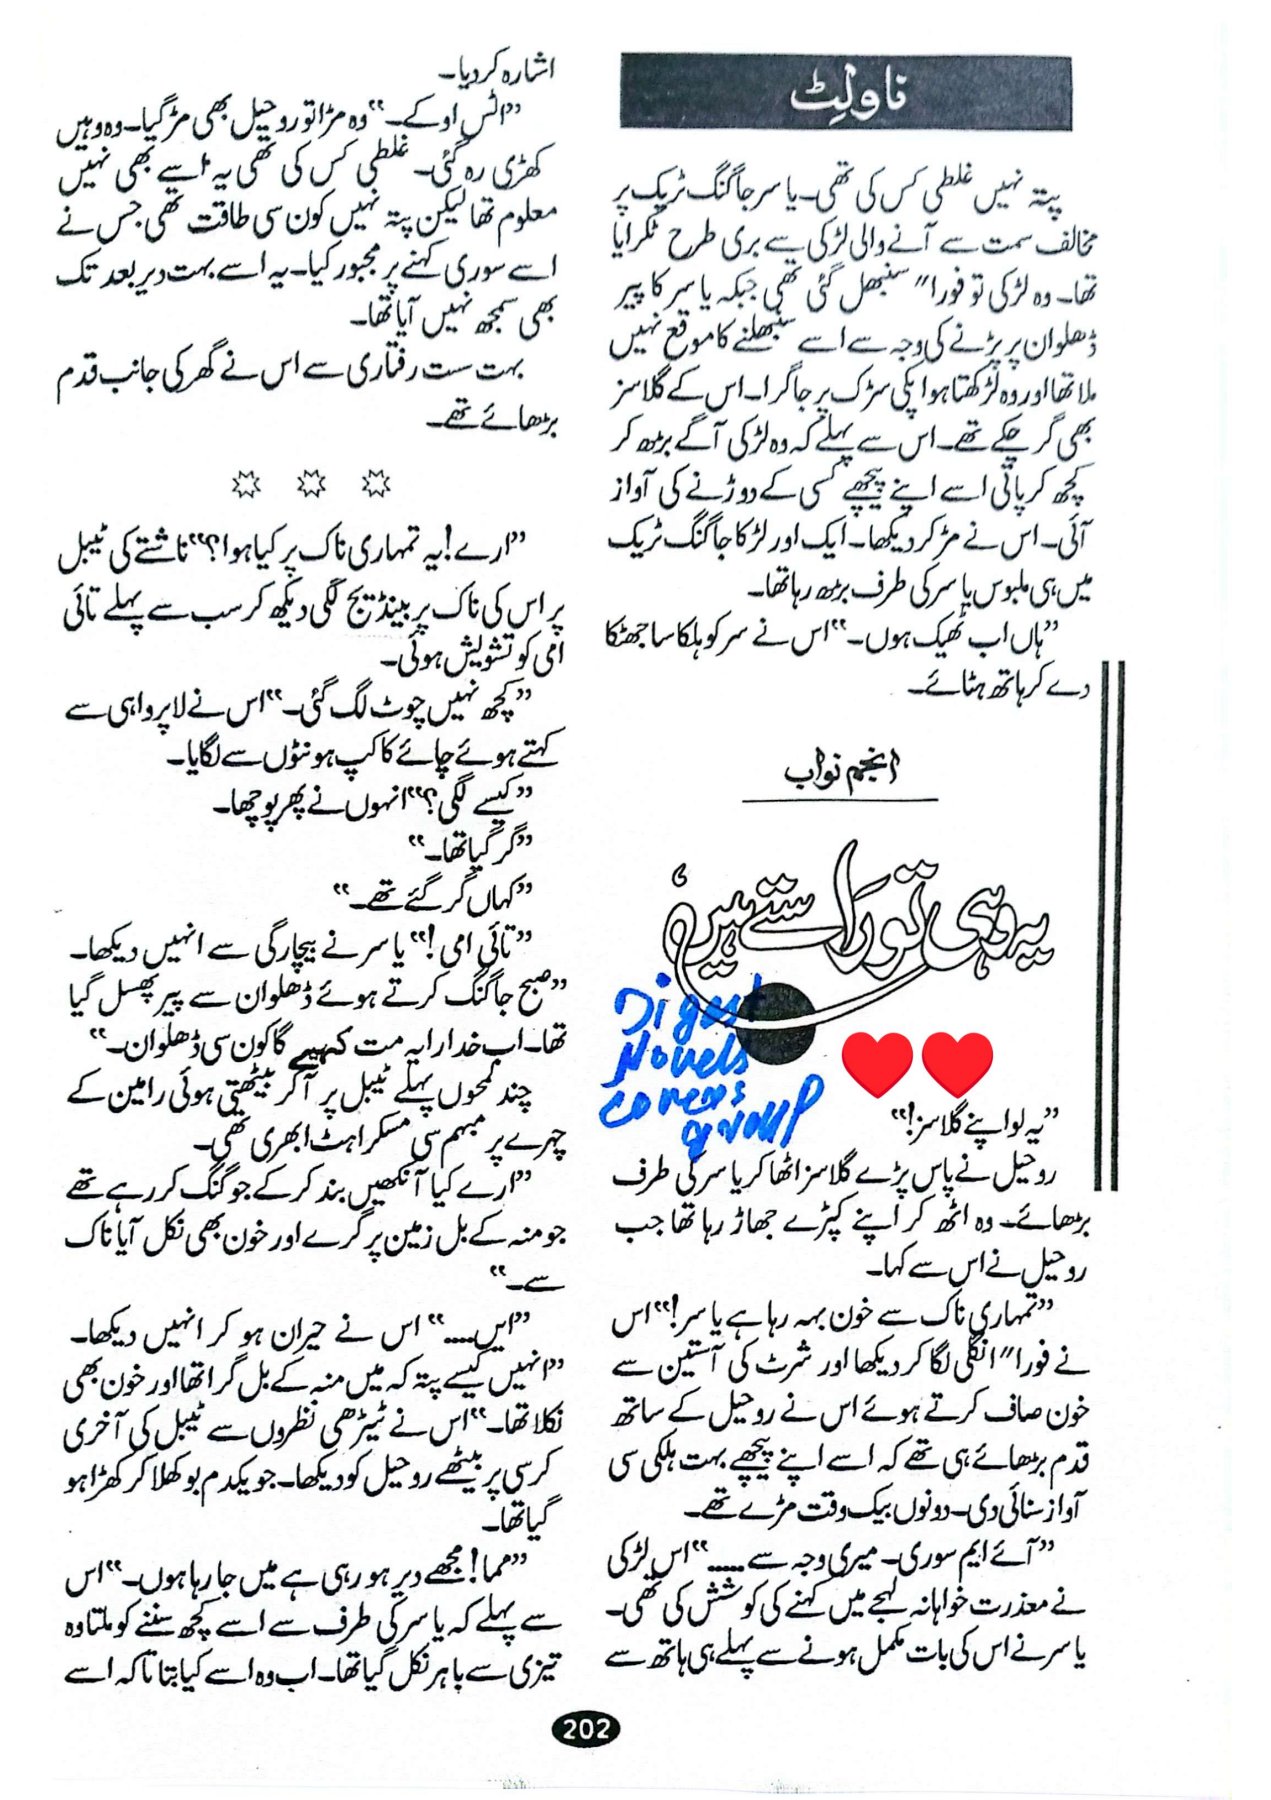 ناولٹ
پتہ نہیں غلطی کس کی تھی۔ یاسر جاگنگ ٹریک پر
مخالف سمت سے آنے والی لڑکی سے بری طرح ٹکرایا
تھا۔ وہ لڑکی تو فورا" سنبھل گئی تھی جبکہ یاسر کا پیر
ڈھلوان پر پڑنے کی وجہ سے اسے سنبھلنے کا موقع نہیں
ملا تھا اور وہ لڑکھتا ہوا پکی سڑک پر جا گرا۔ اس کے گلاسز
بھی گر چکے تھے۔ اس سے پہلے کہ وہ لڑکی آگے بڑھ کر
کچھ کر پاتی اسے اپنے پیچھے کسی کے دوڑنے کی آواز
آئی۔ اس نے مڑ کر دیکھا۔ ایک اور لڑکا جاگنگ ٹریک
میں ہی ملبوس یاسر کی طرف بڑھ رہا تھا۔
"ہاں اب ٹھیک ہوں۔" اس نے سر کو ہلکا سا جھٹکا
دے کر ہاتھ ہٹائے۔
انجم نواب
یہ وہی تو راستے ہیں
Digest
Novels
covers
group
❤❤
"یہ لو اپنے گلاسز!"
روحیل نے پاس پڑے گلاسز اٹھا کر یاسر کی طرف
بڑھائے۔ وہ اٹھ کر اپنے کپڑے جھاڑ رہا تھا جب
روحیل نے اس سے کہا۔
"تمہاری ناک سے خون بہہ رہا ہے یاسر!" اس
نے فورا" انگلی لگا کر دیکھا اور شرٹ کی آستین سے
خون صاف کرتے ہوئے اس نے روحیل کے ساتھ
قدم بڑھائے ہی تھے کہ اسے اپنے پیچھے بہت ہلکی سی
آواز سنائی دی۔ دونوں بیک وقت مڑے تھے۔
"آئے ایم سوری۔ میری وجہ سے....." اس لڑکی
نے معذرت خواہانہ لہجے میں کہنے کی کوشش کی تھی۔
یاسر نے اس کی بات مکمل ہونے سے پہلے ہی ہاتھ سے
اشارہ کر دیا۔
"اٹس اوکے۔" وہ مڑا تو روحیل بھی مڑ گیا۔ وہ وہیں
کھڑی رہ گئی۔ غلطی کس کی تھی یہ اسے بھی نہیں
معلوم تھا لیکن پتہ نہیں کون سی طاقت تھی جس نے
اسے سوری کہنے پر مجبور کیا۔ یہ اسے بہت دیر بعد تک
بھی سمجھ نہیں آیا تھا۔
بہت ست رفتاری سے اس نے گھر کی جانب قدم
بڑھائے تھے۔
"ارے! یہ تمہاری ناک پر کیا ہوا؟" ناشتے کی ٹیبل
پر اس کی ناک پر بینڈیج لگی دیکھ کر سب سے پہلے تائی
امی کو تشویش ہوئی۔
"کچھ نہیں چوٹ لگ گئی۔" اس نے لاپرواہی سے
کہتے ہوئے چائے کا کپ ہونٹوں سے لگایا۔
"کیسے لگی؟" انہوں نے پھر پوچھا۔
"گر گیا تھا۔"
"کہاں گر گئے تھے۔"
"تائی امی!" یاسر نے بیچارگی سے انہیں دیکھا۔
"صبح جاگنگ کرتے ہوئے ڈھلوان سے پیر پھسل گیا
تھا۔ اب خدارا یہ مت کہیے گا کون سی ڈھلوان۔"
چند لمحوں پہلے ٹیبل پر آکر بیٹھتی ہوئی رامین کے
چہرے پر مبہم سی مسکراہٹ ابھری تھی۔
"ارے کیا آنکھیں بند کر کے جوگنگ کر رہے تھے
جو منہ کے بل زمین پر گرے اور خون بھی نکل آیا ناک
سے۔"
"ایں....." اس نے حیران ہو کر انہیں دیکھا۔
"انہیں کیسے پتہ کہ میں منہ کے بل گرا تھا اور خون بھی
نکلا تھا۔" اس نے ٹیڑھی نظروں سے ٹیبل کی آخری
کرسی پر بیٹھے روحیل کو دیکھا۔ جو یکدم بوکھلا کر کھڑا ہو
گیا تھا۔
"مما! مجھے دیر ہو رہی ہے میں جا رہا ہوں۔" اس
سے پہلے کہ یاسر کی طرف سے اسے کچھ سننے کو ملتا وہ
تیزی سے باہر نکل گیا تھا۔ اب وہ اسے کیا بتاتا کہ اسے
202